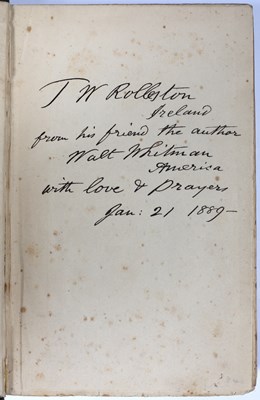 T W Rolleston
Ireland
from his friend the author
Walt Whitman
America
with love & Prayers
Jan: 21 1889 -